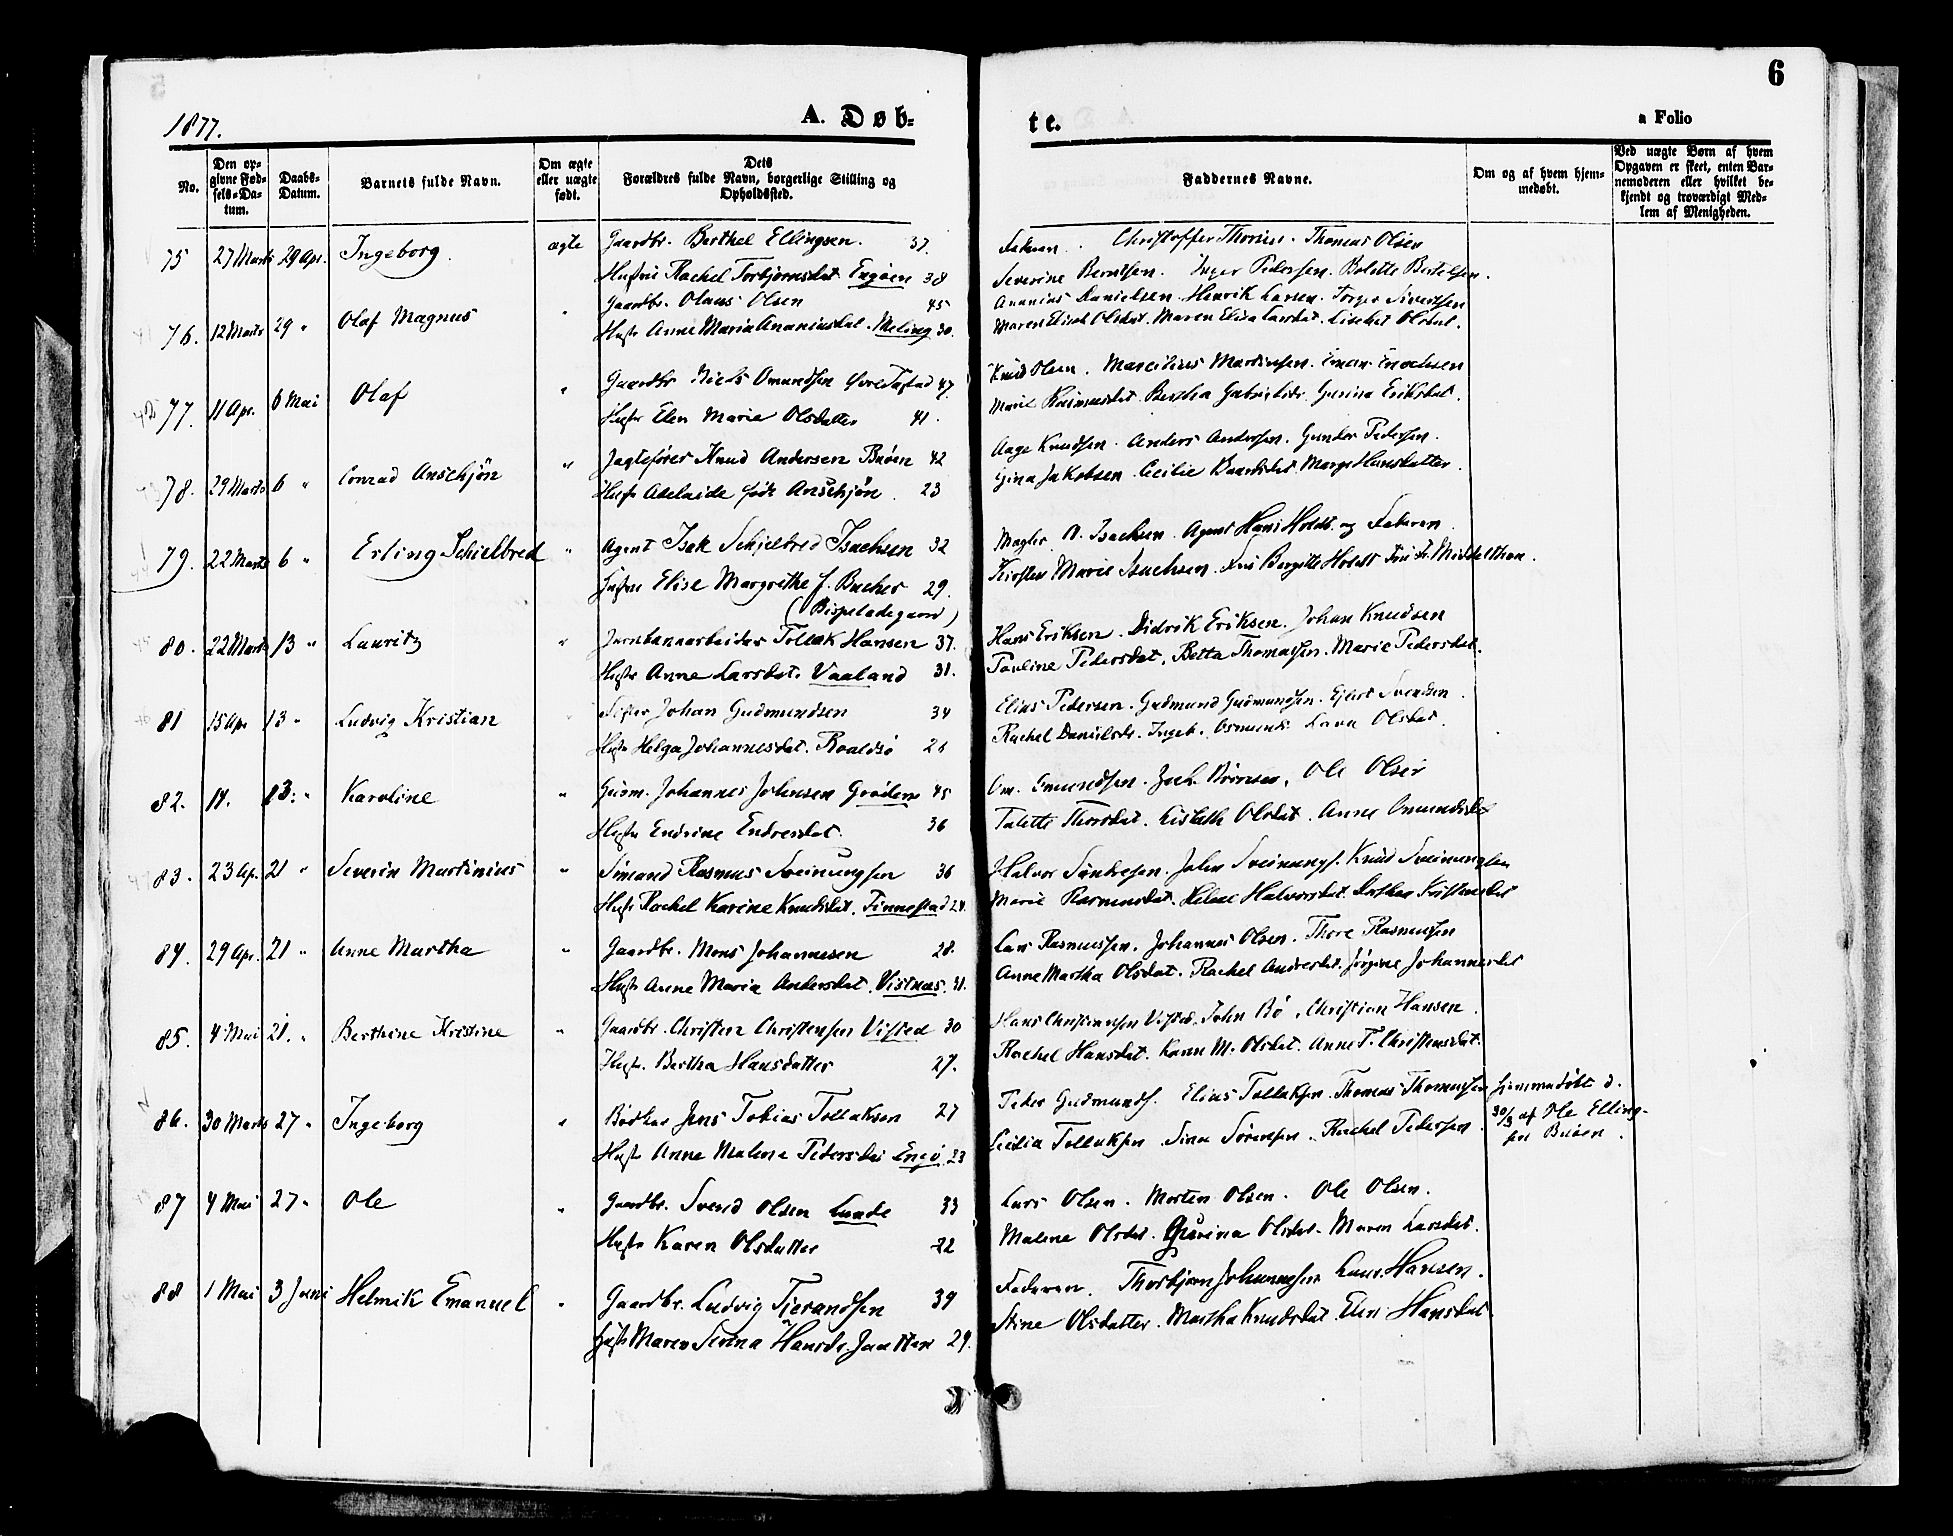 6
1877.
A. Døb-
te.
a Folio
No.
Den op-
givne Fød-
sels-Da-
tum.
Daabs-
Datum.
Barnets fulde Navn.
Om ægte
eller uægte
født.
Dets
Forældres fulde Navn, borgerlige Stilling og
Opholdssted.
Faddernes Navne.
Om og af hvem hjem-
medøbt.
Ved uægte Børn af hvem
Opgaven er skeet, enten Bar-
nemoderen eller hvilket be-
kjendt og troværdigt Med-
lem af Menigheden.
75 27 Marts 29 Apr. Ingeborg. ægte Gaardbr. Berthel Ellingsen. 37. Faderen. Christoffer Thorsen. Thomas Olsen
Hustru Rachel Torbjørnsdat Engøen 38 Severine Berntsen. Inger Pedersen. Bolette Bertelsen.
76. 12 Marts 29 " Olaf Magnus " Gaardbr. Olaus Olsen 45 Ananias Danielsen. Henrik Larsen. Torger Sivertsen
Hustr Anne Maria Ananiasdat. Meling 30. Maren Elisab Olsdat. Maren Elisa Larsdat. Lisebet Olsdat.
77. 11 Apr. 6 Mai Olaf " Gaardbr Niels Omundsen Tastad 47. Knud Olsen. Marcelius Martinsen. Enochsen
Hustr Elen Marie Olsdatter 41. Marie Rasmusdat. Bertha Gabrielsdr. Gurina Eriksdat.
78. 29 Marts 6 " Conrad Anschjøn " Jagtefører Knud Andersen Buøen 42 Aage Knudsen. Anders Andersen. Gunder Pedersen.
Hustr Adelaide født Anschjøn. 23 Gina Jakobsen. Cecilie Marge Hansdatter.
79. 22 Marts 6 " Erling Schielbred " Agent Isak Schjelbred Isachsen 32 Mægler O. Isachsen. Agent Hans Holdt og Faderen.
Hustru Elise Margrethe f. Bucher 29. Kirsten Marie Isachsen. Fru Bergitte Holdt Fru Middelthon.
(Bispeladegaard)
80. 22 Marts 13 " Lauritz " Jernbanearbeider Tollak Hansen 37. Hans Eriksen. Didrik Eriksen. Johan Knudsen
Hustr Anne Larsdat. Vaaland 31. Pauline Pedersdat. Betta Thomassen. Marie Pedersdat.
81 15 Apr. 13 " Ludvig Kristian " Johan Gudmundsen 34 Elias Pedersen. Gudmund Gudmundsen. Ejlert Svendsen.
Hustr Helga Johannesdat. Roaldsø Rachel Danielsdr. Ingeb. Osmunds. Lava Olsdat.
82. 14. 13. " Karoline " Johannes Johnsen Grøden 45 Om. Omundsen. Ole Olsen
Hustr Endrine Endresdat. 36 Talette Thorsdat. Lisbeth Olsdat. Anne Omundsdat
83. 23 Ap. 21 " Severin Martinius " Sømand Rasmus Sveinungsen 36 Halvor Søndresen. John Sveinungs. Knud Sveinungsen
Hustr Rachel Karine Knudsdat. Finnestad 24. Marie Rasmusdat. Helene Halvorsdat. Kristensdat
84. 29 Apr. 21 " Anne Martha " Gaardbr. Mons Johannesen 28. Lars Rasmussen. Johannes Olsen. Thore Rasmussen
Hustr Anne Maria Andersdat. Vistnæs. 31. Anne Martha Olsdat. Rachel Andersdat. Jørgine Johannesdat
85. 4 Mai 21. " Berthine Kristine " Gaardbr. Christen Christensen Visted 30 Hans Christiansen Visted. John Bø. Christian Hansen.
Hustr. Bertha Hansdatter 27. Rachel Hansdat. Karen M. Olsdat. Anne T. Christensdat.
86. 30 Marts 27 " Ingeborg " Bødker Jens Tobias Tollaksen 27 Peder Gudmunds. Elias Tollaksen. Thomas Thomassen hjemmedøbt d.
30/3 af Ole Elling-
Hustr Anne Malene Pedersdat Engø. 23 Cecilia Tollaksen. Sina Sørensen. Rachel Pedersen. sen Buøen.
87 4 Mai 27 " Ole " Gaardbr. Svend Olsen Lunde 33 Lars Olsen. Morten Olsen. Ole Olsen.
Hustr Karen Olsdatter 22 Malene Olsdat. Gurina Olsdat. Maren Larsdat.
88 1 Mai 3 Juni Helmik Emanuel " Gaardbr. Ludvig Tjerandsen 39 Faderen. Thorbjørn Johannesen Laur. Hansen.
Hustr Maren Serina Hansdr. Jaatten 29. Stine Olsdatter. Martha Knudsdat. Elen Hansdat.